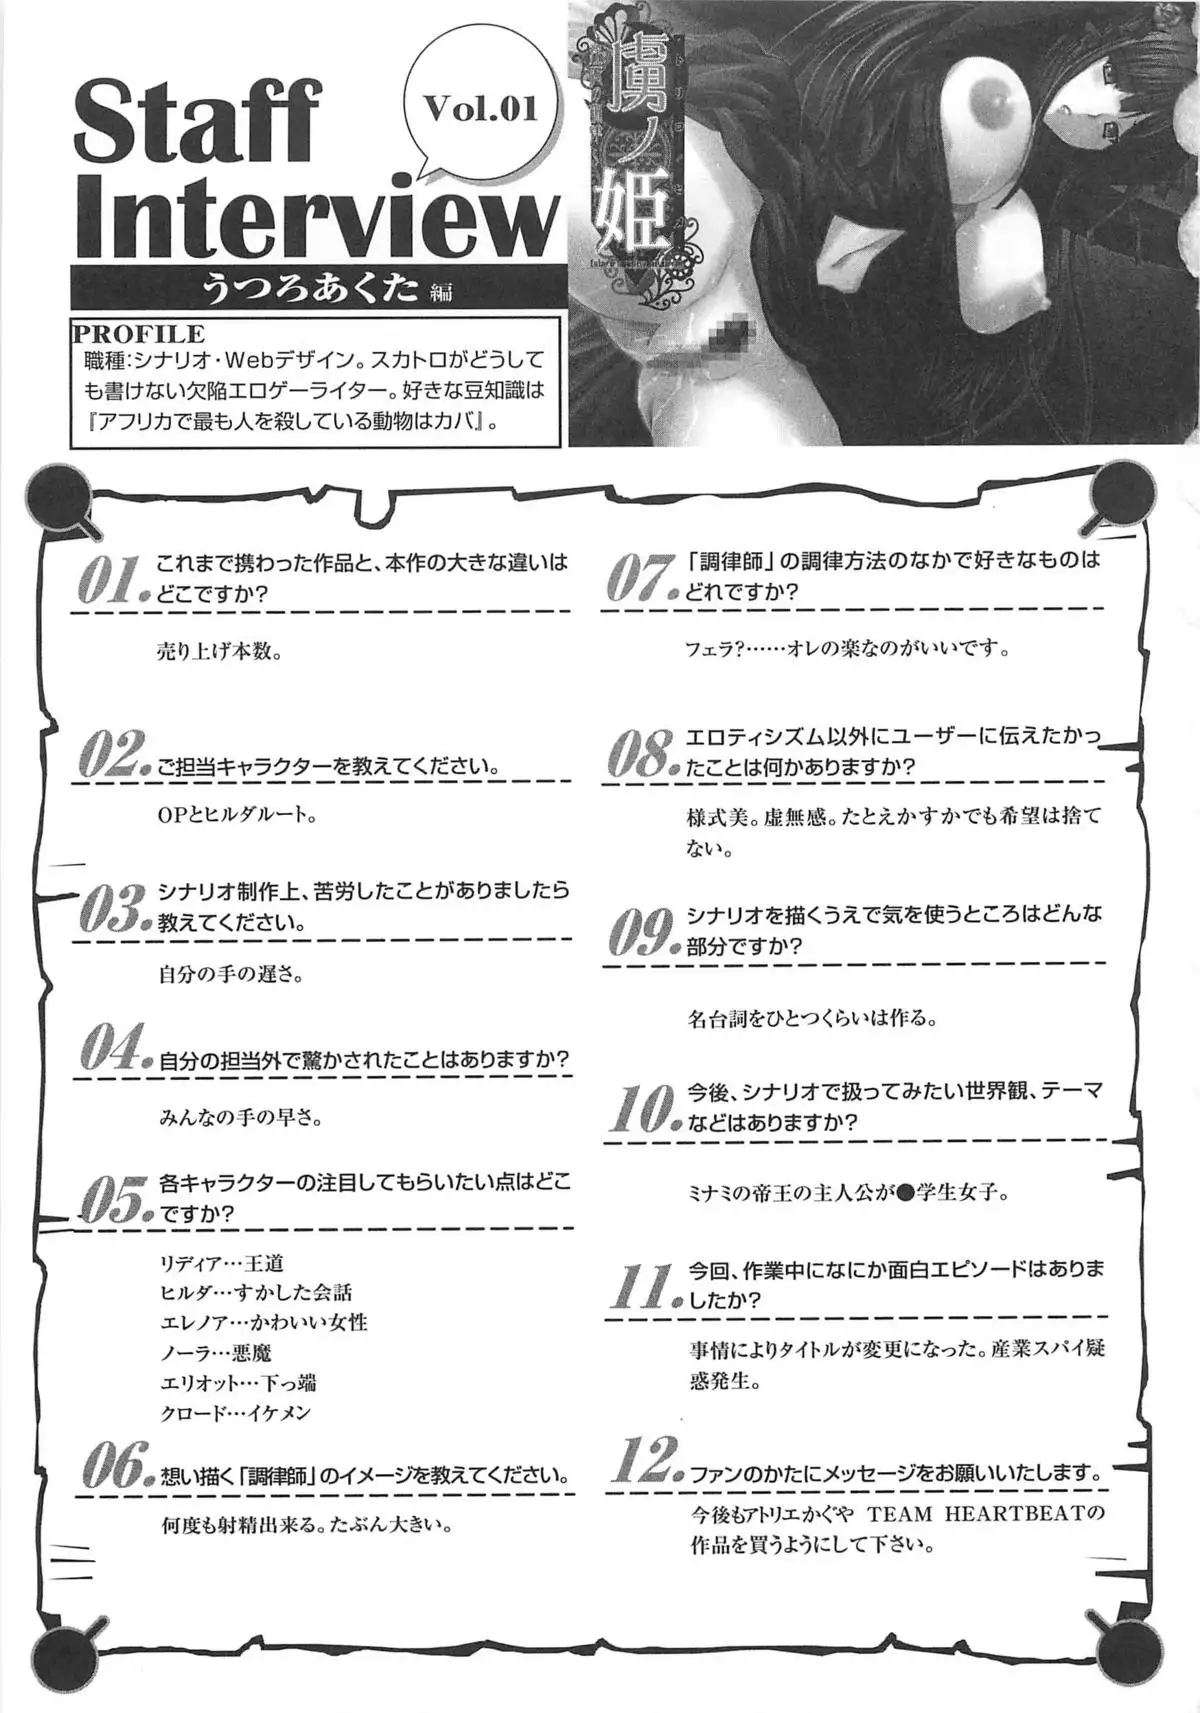 Staff
Interview
Vol.01
うつろあくた 編
虜ノ姫
PROFILE
職種:シナリオ・Webデザイン。スカトロがどうして
も書けない欠陥エロゲーライター。好きな豆知識は
『アフリカで最も人を殺している動物はカバ』。
01. これまで携わった作品と、本作の大きな違いは
どこですか?
売り上げ本数。
02. ご担当キャラクターを教えてください。
OPとヒルダルート。
03. シナリオ制作上、苦労したことがありましたら
教えてください。
自分の手の遅さ。
04. 自分の担当外で驚かされたことはありますか?
みんなの手の早さ。
05. 各キャラクターの注目してもらいたい点はどこ
ですか?
リディア…王道
ヒルダ…すかした会話
エレノア…かわいい女性
ノーラ…悪魔
エリオット…下っ端
クロード…イケメン
06. 想い描く「調律師」のイメージを教えてください。
何度も射精出来る。たぶん大きい。
07. 「調律師」の調律方法のなかで好きなものは
どれですか?
フェラ?……オレの楽なのがいいです。
08. エロティシズム以外にユーザーに伝えたかっ
たことは何かありますか?
様式美。虚無感。たとえかすかでも希望は捨て
ない。
09. シナリオを描くうえで気を使うところはどんな
部分ですか?
名台詞をひとつくらいは作る。
10. 今後、シナリオで扱ってみたい世界観、テーマ
などはありますか?
ミナミの帝王の主人公が●学生女子。
11. 今回、作業中になにか面白エピソードはありま
したか?
事情によりタイトルが変更になった。産業スパイ疑
惑発生。
12. ファンのかたにメッセージをお願いいたします。
今後もアトリエかぐや TEAM HEARTBEATの
作品を買うようにして下さい。